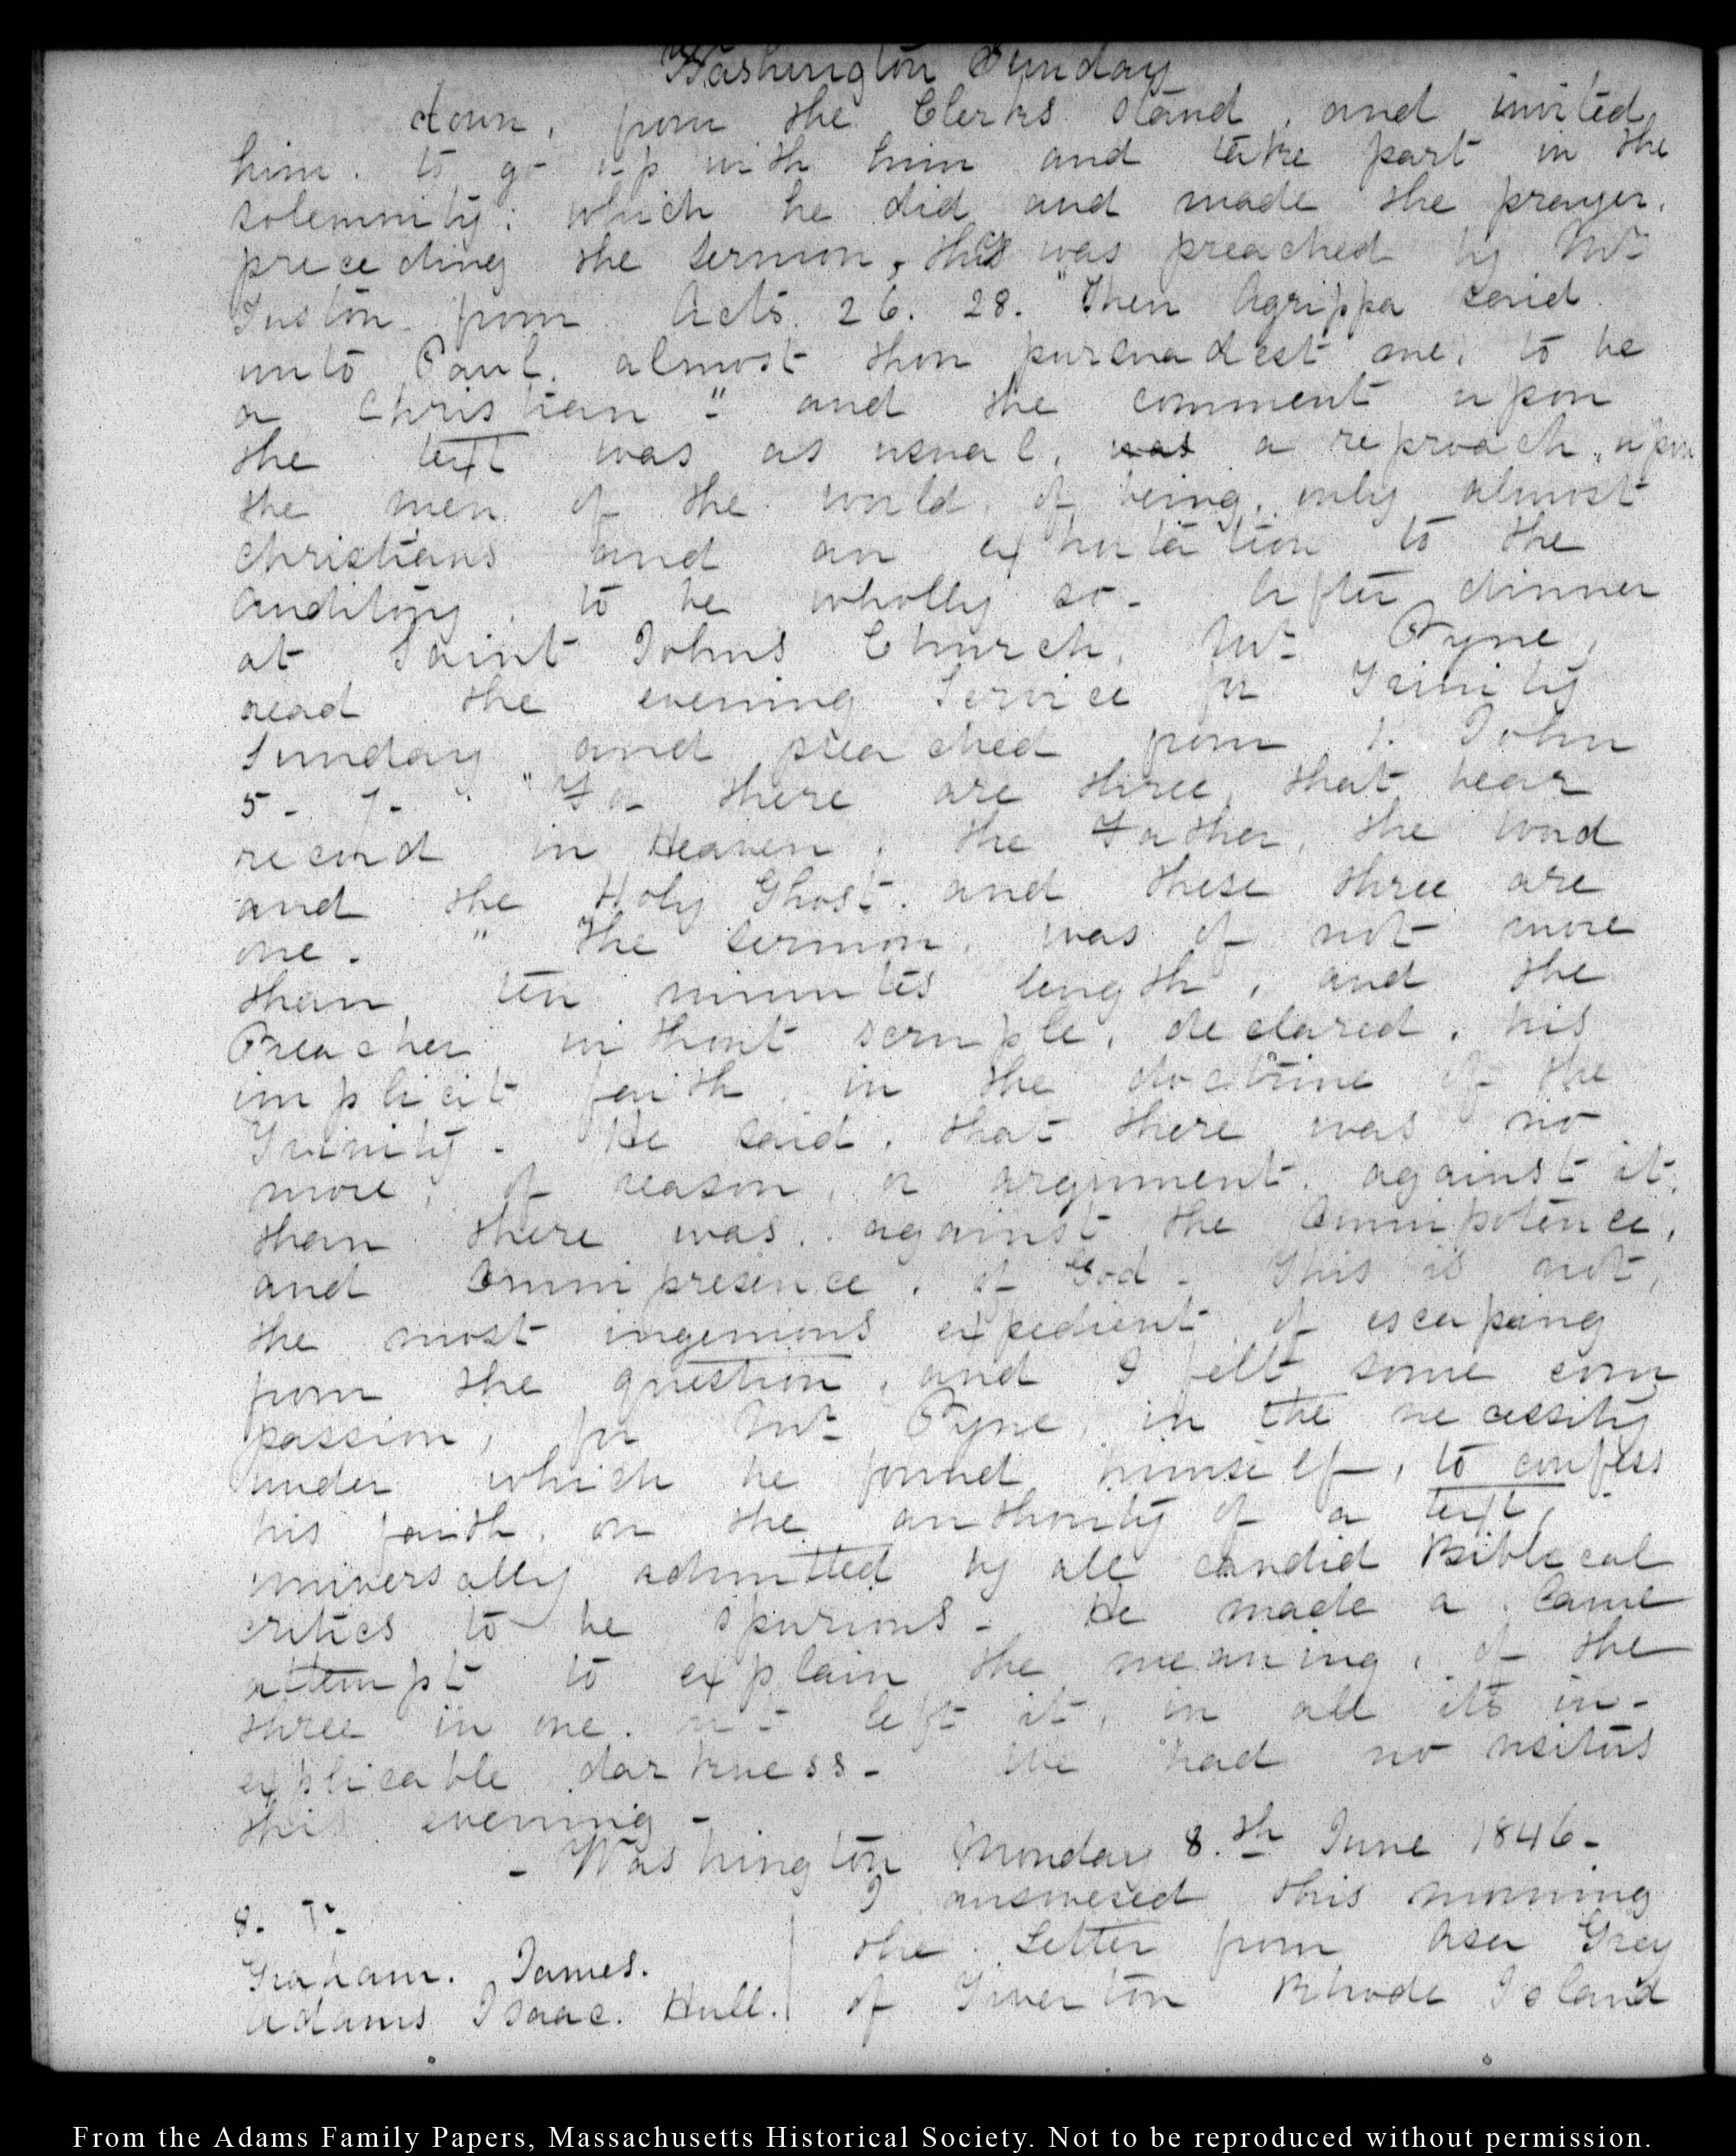 Washington Sunday
down, from the Clerks stand, and invited
him. to go up with him and take part in the
solemnity: which he did and made the prayer.
preceding the sermon, this was preached by Mr
Tuston from Acts. 26. 28. "Then Agrippa said
unto Paul. almost thou pursuadest me, to be
a Christian" - and the comment upon
the text was as usual, was a reproach, upon
the men of the world, of being, only almost
christians and an exhortation to the
auditory, to be wholly so - After dinner
at Saint Johns Church, Mr Pyne,
read the evening Service for Trinity
Sunday and preached from 1. John
5 - 7 - "For there are three, that bear
record in Heaven, the Father, the word
and the Holy Ghost. and these three are
one. " The sermon, was of not more
than ten minutes length, and the
Preacher without scruple, declared, his
implicit faith, in the doctrine of the
Trinity - He said, that there was no
more, of reason, or argument, against it,
than there was, against the Omnipotence,
and Omnipresence, of God - This is not,
the most ingenious expedient, of escaping
from the question, and I felt some com
passion, for Mr Pyne, in the necessity
under which he found himself, to confess
his faith, on the authority of a text,
universally admitted by all candid Biblical
critics to be spurious - He made a lame
attempt to explain the meaning, of the
three in one. left it, in all its in-
explicable darkness - We had no visitors
this evening -
- Washington Monday 8.th June 1846 -
8. I answered this morning
the Letter from Asa Grey
Graham. James.
of Tiverton Rhode Island
Adams Isaac. Hull.
From the Adams Family Papers, Massachusetts Historical Society. Not to be reproduced without permission.